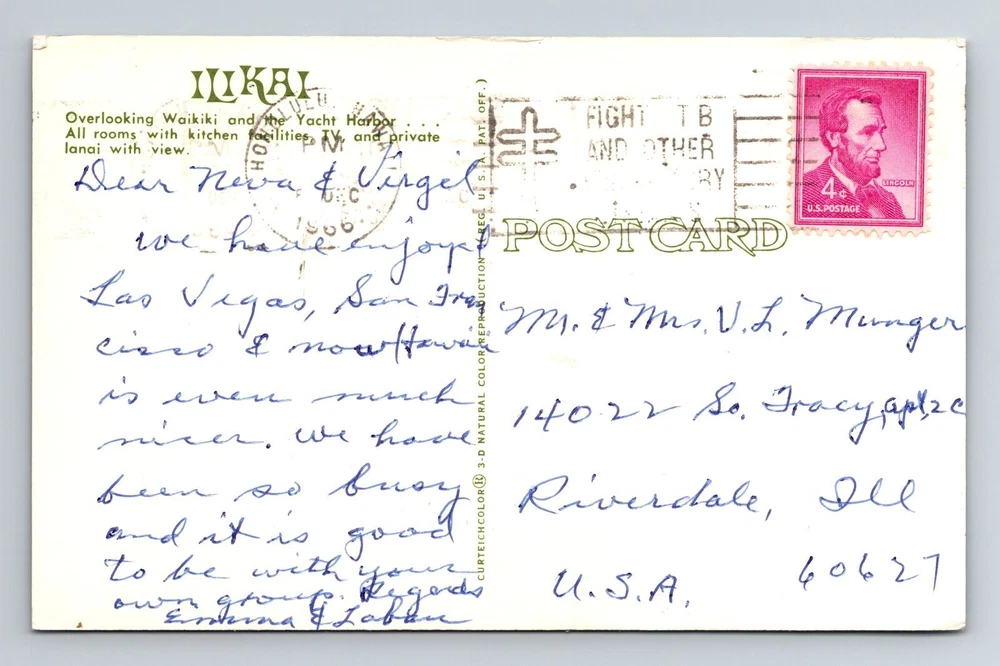 ILIKAI
Overlooking Waikiki and the Yacht Harbor . . .
All rooms with kitchen facilities, TV, and private
lanai with view.
Dear Neva & Virgel
We have enjoyed
Las Vegas, San Fran
cisco & now Hawaii
is even much
nicer. We have
been so busy
and it is good
to be with your
own group. Regards
Emma & Laban
HONOLULU, HAWAII
PM
DEC
1966
CURTEICHCOLOR® 3-D NATURAL COLOR REPRODUCTION (REG. U.S.A. PAT. OFF.)
FIGHT TB
AND OTHER
RY
4¢
LINCOLN
U.S. POSTAGE
POST CARD
Mr. & Mrs. V. L. Munger
14022 So. Tracy, apt, 2C
Riverdale, Ill
U.S.A. 60627